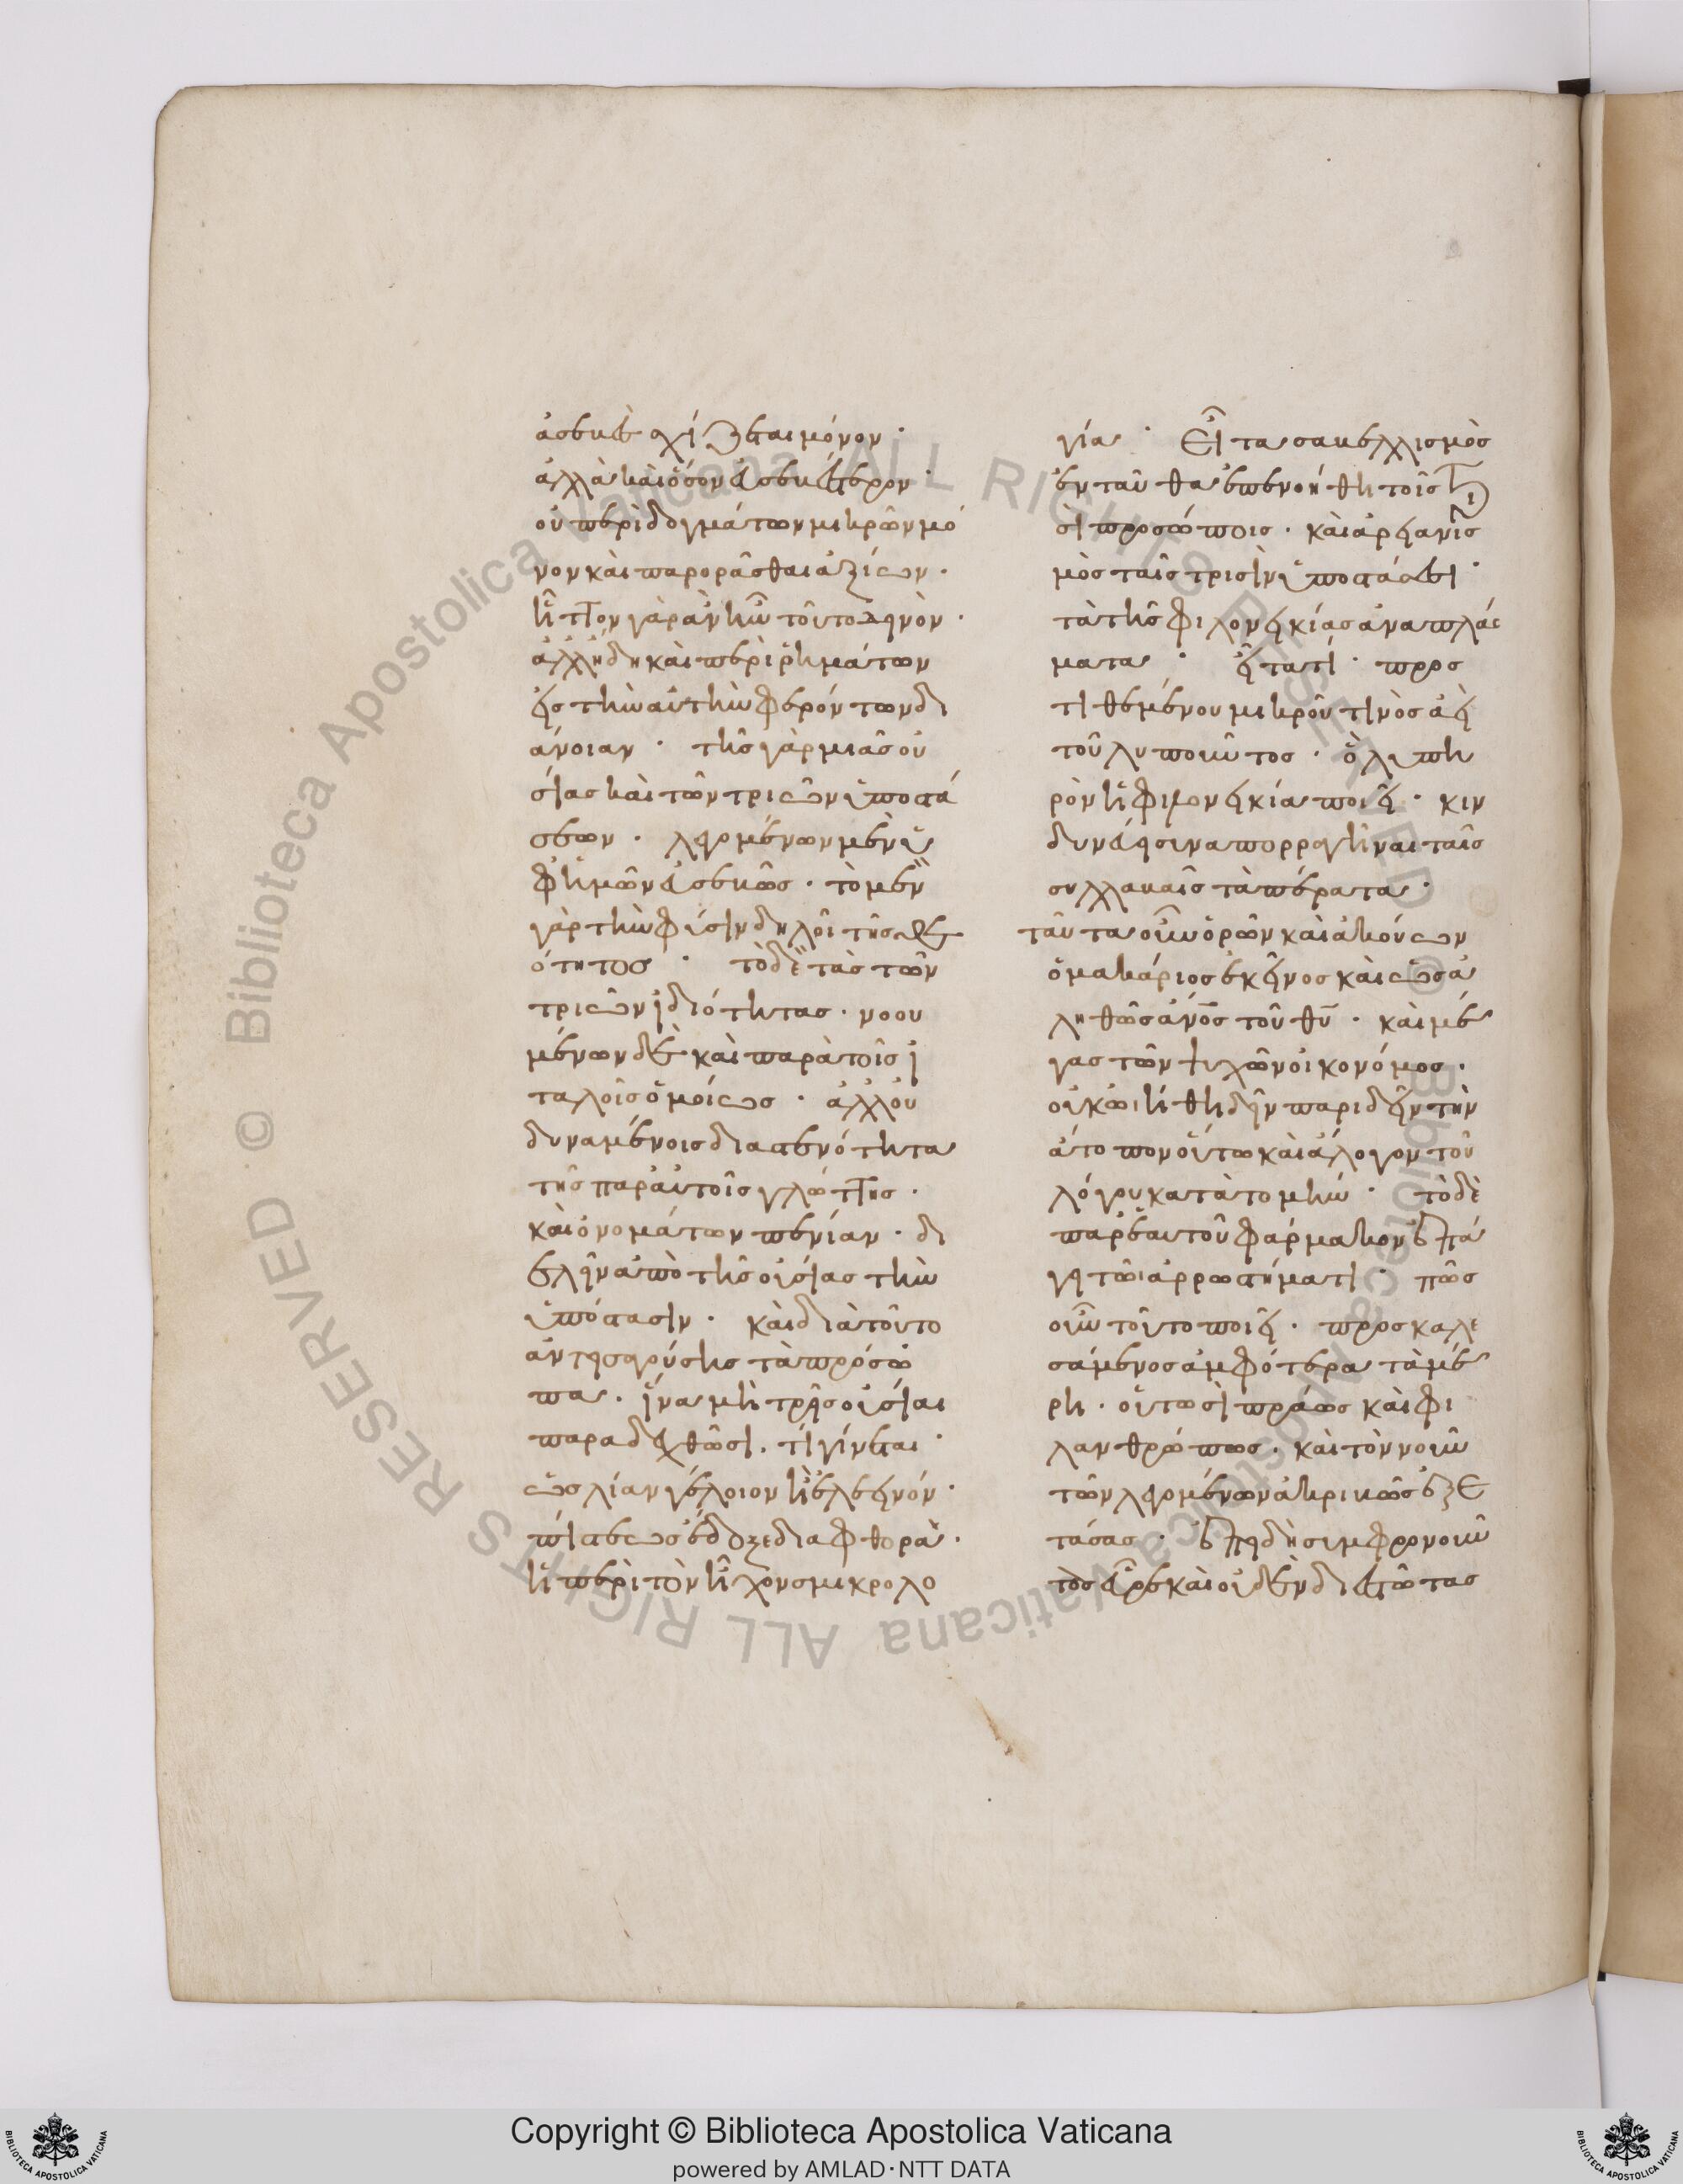 ἀσεβὲς σχίζεται μόνον·
ἀλλὰ καὶ ὅσον εὐσεβέστερον·
οὐ περὶ δογμάτων μικρῶν μό
νον καὶ παρορᾶσθαι ἀξίων·
ἧττον γὰρ ἂν ἦν τοῦτο δεινὸν·
ἀλλ' ἤδη καὶ περὶ ῥημάτων
εἰς τὴν αὐτὴν φερόντων δι
άνοιαν· τῆς γὰρ μιᾶς οὐ
σίας καὶ τῶν τριῶν ὑποστά
σεων· λεγομένων μὲν ὑ
φ' ἡμῶν εὐσεβῶς· τὸ μὲν
γὰρ τὴν φύσιν δηλοῖ τῆς θε
ότητος· τὸ δὲ τὰς τῶν
τριῶν ἰδιότητας· νοου
μένων δὲ καὶ παρὰ τοῖς ἰ
ταλοῖς ὁμοίως· ἀλλ' οὐ
δυναμένοις δια στενότητα
τῆς παρ' αὐτοῖς γλώττης·
καὶ ὀνομάτων πενίαν· δι
ελεῖν ἀπὸ τῆς οὐσίας τὴν
ὑπόστασιν· καὶ διὰ τοῦτο
ἀντεισαγούσης τὰ πρόσω
πα· ἵνα μὴ τρεῖς οὐσίαι
παραδεχθῶσι· τί γίνεται·
ὡς λίαν γέλοιον ἢ ἐλεεινόν·
πίστεως ἔδοξε διαφθορὰ·
ἡ περὶ τὸν ἦχον σμικρολο
γία· Εἶτα σαβελλισμὸς
ἐνταῦθα ἐπενοήθη τοῖς τρι
σὶ προσώποις· καὶ ἀρειανισ
μὸς ταῖς τρισὶν ὑποστάσεσι·
τὰ τῆς φιλονεικίας ἀναπλάσ
ματα· εἶτα τί· προσ
τιθεμένου μικροῦ τινὸς ἀεὶ
τοῦ λυποῦντος· ὃ λυπη
ρὸν ἡ φιλονεικία ποιεῖ· κιν
δυνεύει συναπορραγῆναι ταῖς
συλλαβαῖς τὰ πέρατα·
ταῦτα οὖν ὁρῶν καὶ ἀκούων
ὁ μακάριος ἐκεῖνος καὶ ὡς ἀ
ληθῶς ἄνος τοῦ θυ· καὶ μέ
γας τῶν ψυχῶν οἰκονόμος·
οὐκ ὠιήθη δεῖν παριδεῖν τὴν
ἄτοπον οὕτω καὶ ἄλογον τοῦ
λόγου κατατομήν· τὸ δὲ
παρ' ἑαυτοῦ φάρμακον ἐπά
γει τῶι ἀρρωστήματι· πῶς
οὖν τοῦτο ποιεῖ· προσκαλε
σάμενος ἀμφότερα τὰ μέ
ρη· οὑτωσὶ πράως καὶ φι
λανθρώπως· καὶ τὸν νοῦν
τῶν λεγομένων ἀκριβῶς ἐξε
τάσας· ἐπειδὴ συμφρονοῦν
τας εὗρε καὶ οὐδὲν διεστῶτας